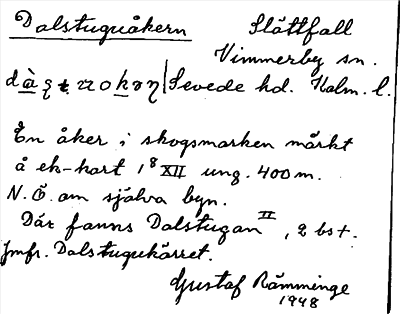 Dalstuguåkern Slättfall
Vimmerby sn.
Sevede hd. Kalm. l.
En åker i skogsmarken märkt
å ek-kart 1⁸ XII ung. 400 m.
N.Ö. om själva byn.
Där fanns Dalstugan II, 2 bst.
Jmfr. Dalstugukärret.
Gustaf Rämminge
1948